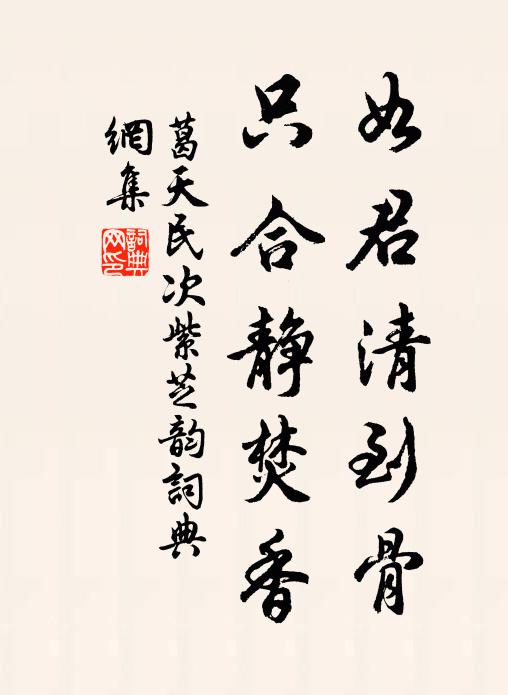 如君清到骨
只合靜焚香
葛天民次紫芝韵詞典
網集
詞典
网印